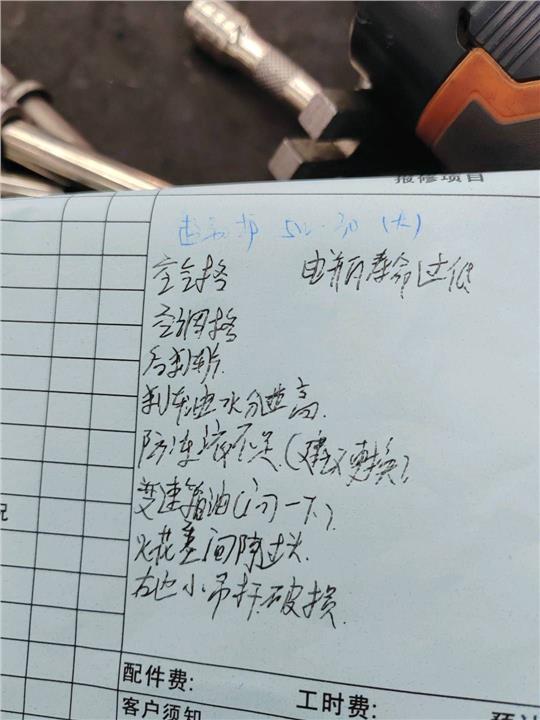 报修项目
5W-30 (大)
空气格 电瓶寿命过低
空调格
后刹车片
刹车油水分过高
防冻液不足(建议更换)
变速箱油(问一下)
火花塞间隙过大
小吊杆破损
配件费:
工时费:
客户须知